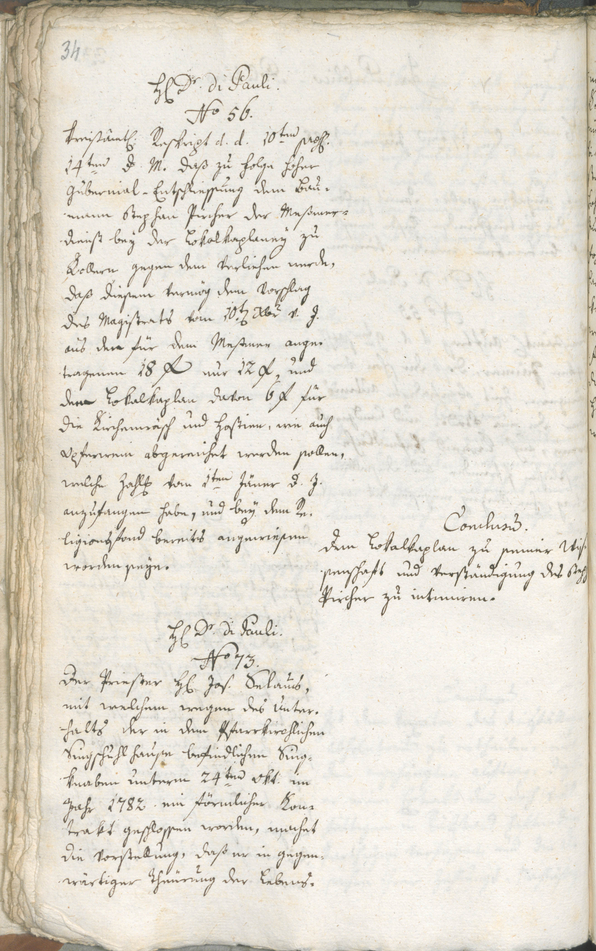 34
H. Dr. di Pauli.
No 56.
Kreisämtl. Reskript d. d. 10ten präs.
14ten d. M. daß zu Folge hoher
Gubernial-Entschliessung dem Bau-
mann Stephan Pircher der Meßner-
dienst bey der Lokalkaplaney zu
Kollern gegen dem verliehen werde,
daß diesem vermög dem Vorschlag
des Magistrats vom 10t Xbr v. J.
aus den für dem Meßner ange-
tragenen 18 f nur 12 f, und
dem Lokalkaplan davon 6 f für
die Kirchenwäsch und Hostien, wie auch
Opferwein abgereichet werden sollen,
welche Zahlg vom 1ten Jäner d. J.
anzufangen habe, und bey dem Re-
ligionsfond bereits angewiesen
worden seye.
Conclusum.
Dem Lokalkaplan zu seiner Wis-
senschaft und Verständigung des Steph
Pircher zu intimiren.
H. Dr. di Pauli.
No 73.
Der Priester H. Jos. Selaus,
mit welchem wegen des Unter-
halts der in dem Pfarrkirchlichen
Singschuhlhause befindlichen Sing-
knaben unterm 24ten Okt. im
Jahr 1782 ein förmlicher Kon-
trakt geschlossen worden, machet
die Vorstellung, daß er in gegen-
wärtiger Theurung der Lebens-